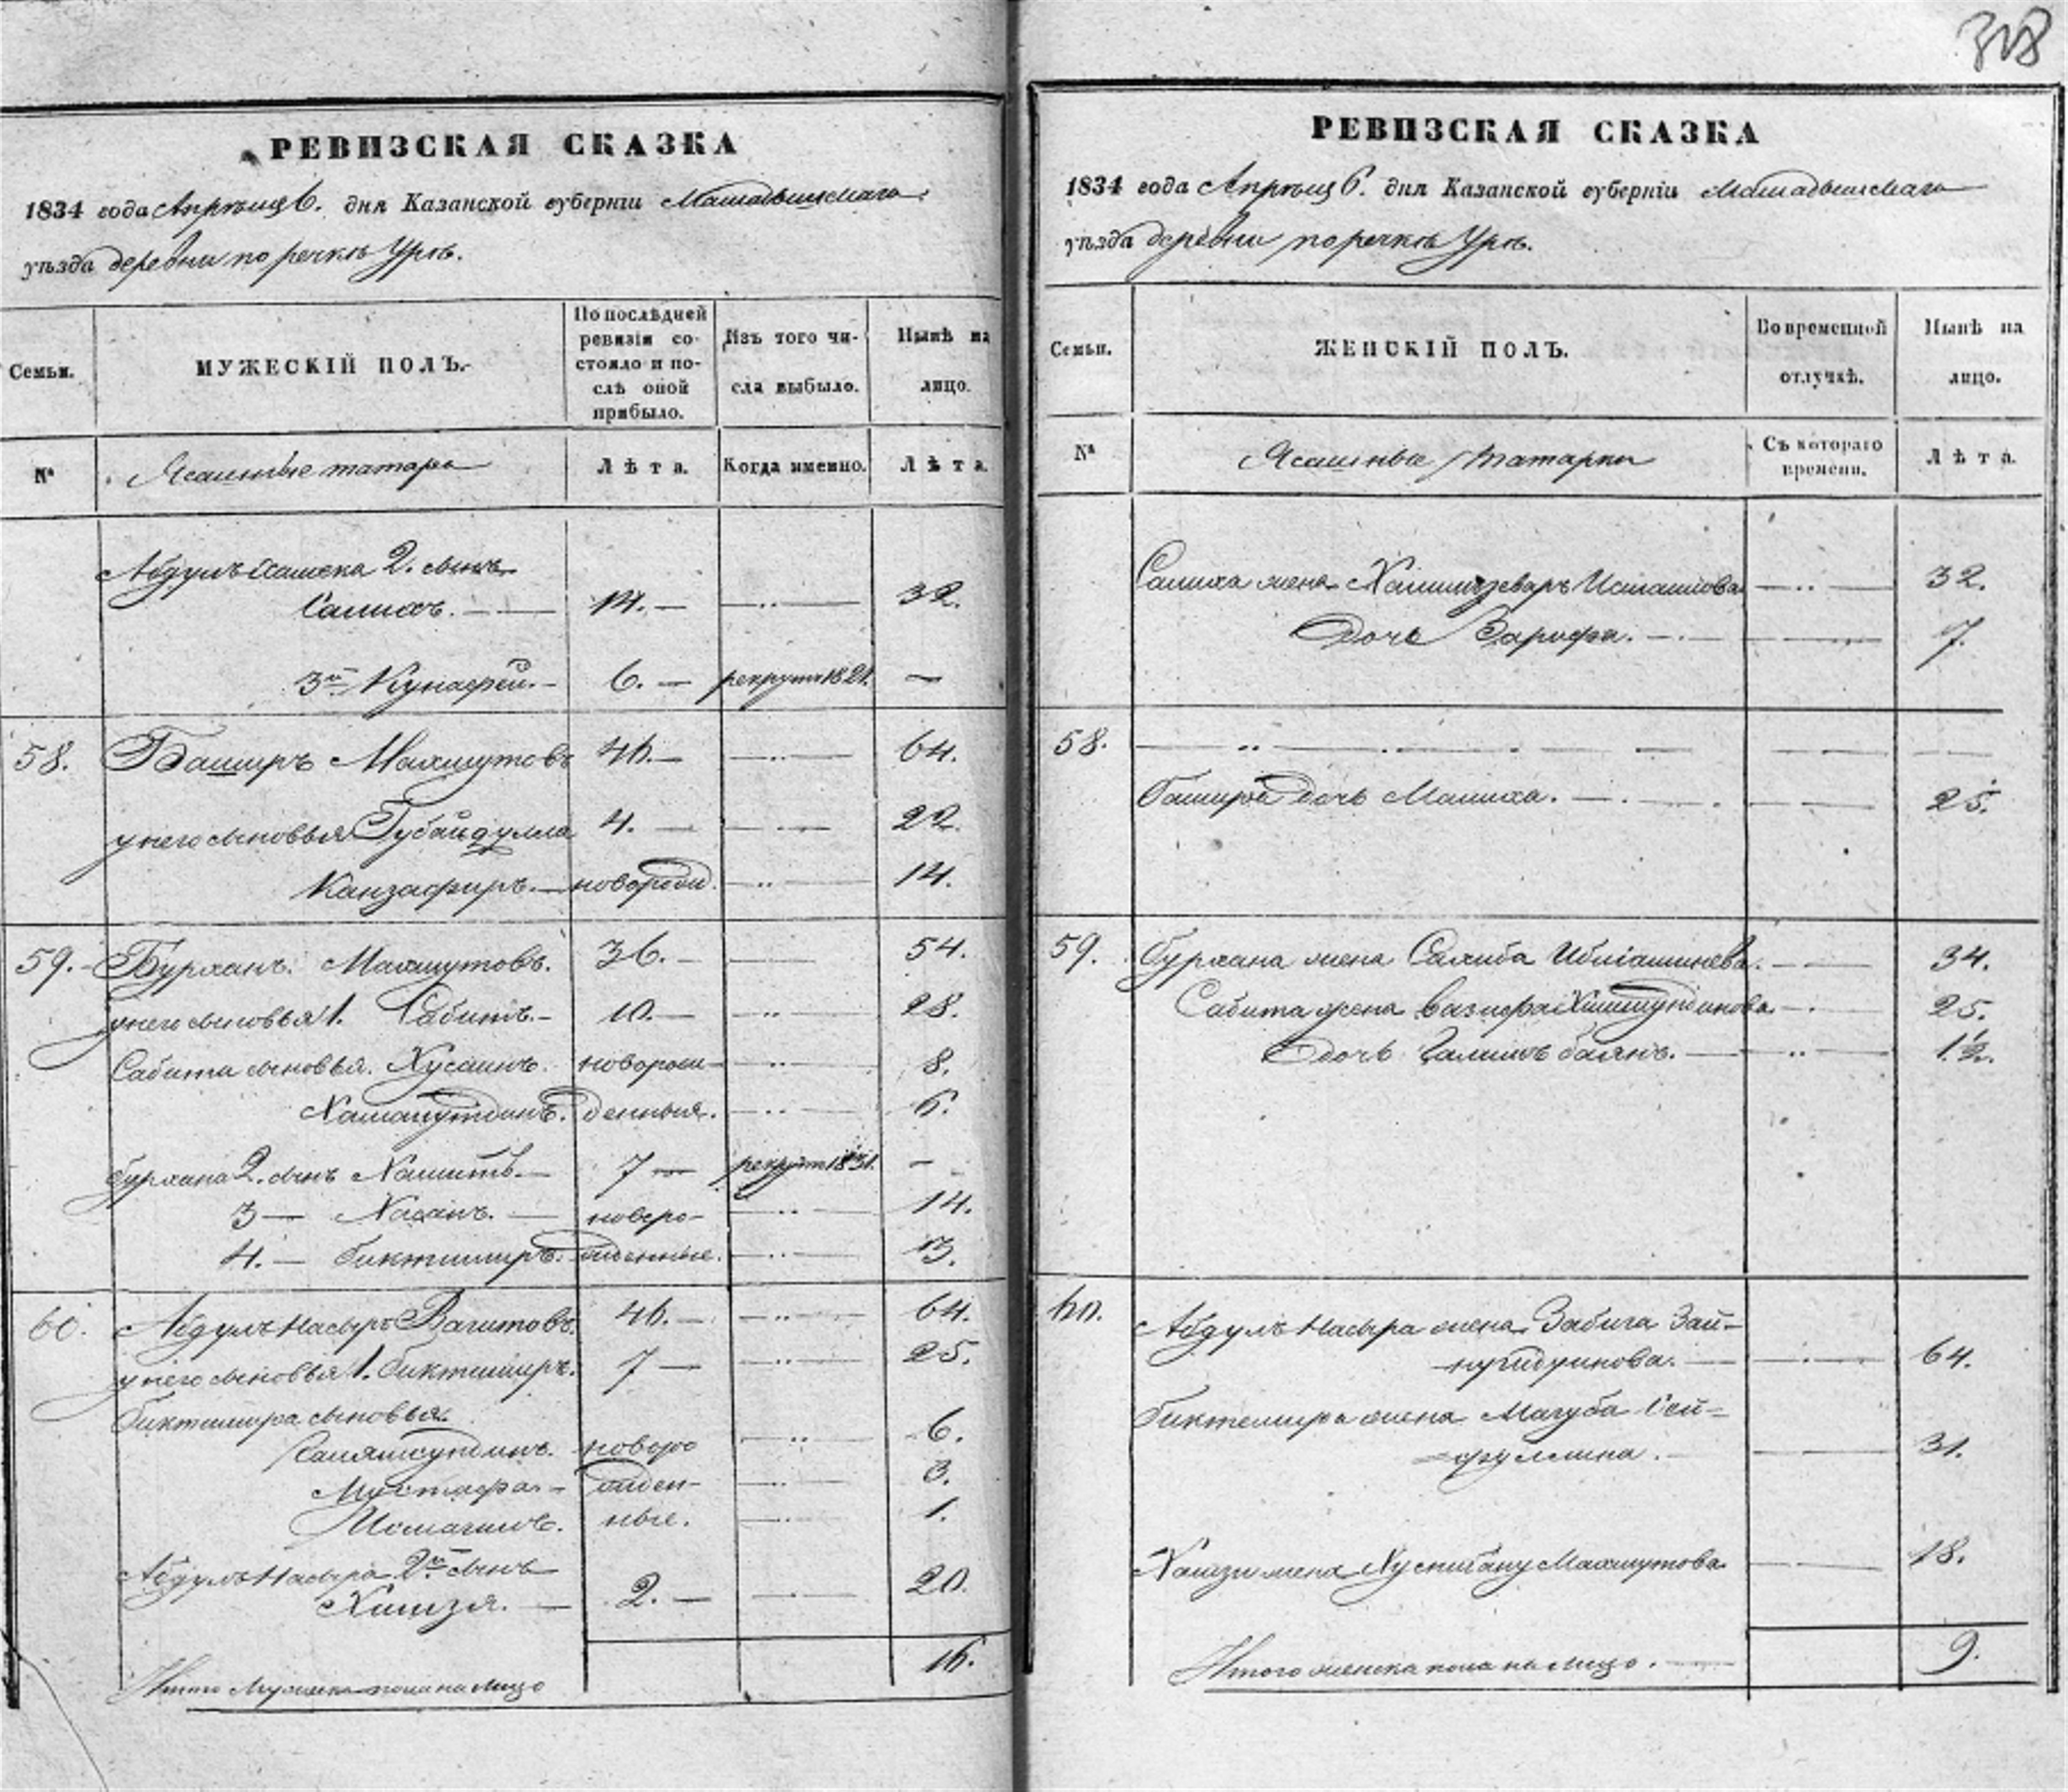 318
РЕВИЗСКАЯ СКАЗКА
1834 года Апреля 6. дня Казанской губерніи Мамадышскаго
уѣзда деревни по речкѣ Урѣ.
Семьи.
МУЖЕСКІЙ ПОЛЪ.
По послѣдней ревизіи состояло и послѣ оной прибыло.
Изъ того числа выбыло.
Нынѣ на лицо.
№
Ясашные татара
Лѣта.
Когда именно.
Лѣта.
Абдулъ 2. сынъ
Салихъ. — 14. — — 32.
3й Кунафей. — 6. — рекрутъ 1821. —
58. Баширъ Махмутовъ 46. — — 64.
у него сыновья Губайдулла 4. — — 22.
Канзафиръ. — новорожд. — 14.
59. Бурханъ Махмутовъ. 36. — — 54.
у него сыновья 1. Сабитъ. — 10. — — 28.
Сабита сыновья. Хусаинъ. новорож- — 8.
денныя. — 6.
Бурхана 2. сынъ Хамитъ. — 7 — рекрутъ 1831. —
3 — Хасанъ. — новоро- — 14.
4. — Биктимиръ. жденные. — 13.
60. Абдулъ Насыръ Вагитовъ. 46. — — 64.
у него сыновья 1. Биктимиръ. 7 — — 25.
Биктимира сыновья.
новоро — 6.
Мустафа. — жден- — 3.
Исмагилъ. ные. — 1.
Абдулъ Насыра 2й сынъ
Хамзя. — 2. — — 20.
Итого мужеска пола на лицо 16.
РЕВИЗСКАЯ СКАЗКА
1834 года Апреля 6. дня Казанской губерніи Мамадышскаго
уѣзда деревни по речкѣ Урѣ.
Семьи.
ЖЕНСКІЙ ПОЛЪ.
Во временной отлучкѣ.
Нынѣ на лицо.
№
Ясашные татарки
Съ котораго времени.
Лѣта.
Салиха жена Исмаилова — 32.
Дочь Зарифа. — 7.
58. — — —
Башира дочь Малиха. — — 25.
59. Бурхана жена Сахиба — 34.
Сабита жена — 25.
дочь — 1½.
60. Абдулъ Насыра жена Забига Зай-
— 64.
Биктемира жена Магуба Сей-
фуллина. — — 31.
Хамзи жена Махмутова — 18.
Итого женска пола на лицо. — 9.